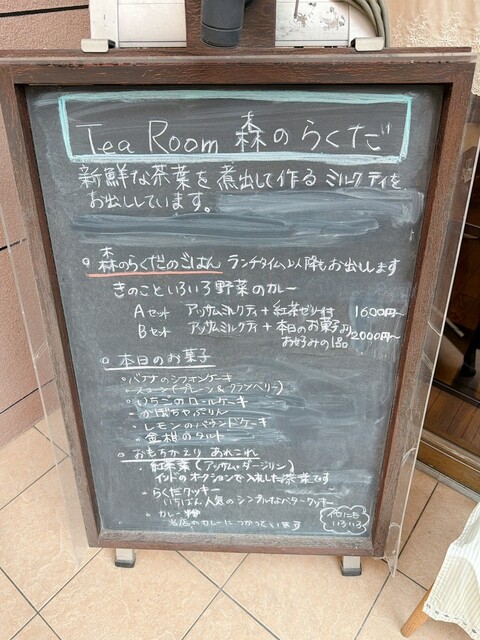 Tea Room 森のらくだ
新鮮な茶葉を煮出して作るミルクティを
お出ししています。
森のらくだのごはん ランチタイム以降もお出しします
きのこといろいろ野菜のカレー
Aセット アッサムミルクティ+紅茶ゼリー付 1600円〜
Bセット アッサムミルクティ+本日のお菓子より
お好みの1品 2000円〜
本日のお菓子
・バナナのシフォンケーキ
・スコーン(プレーン&クランベリー)
・いちごのロールケーキ
・かぼちゃぷりん
・レモンのパウンドケーキ
・金柑のタルト
おもちかえりあれこれ
紅茶葉(アッサム・ダージリン)
インドのオークションで入れした茶葉です
らくだクッキー
いちばん人気のシンプルなバタークッキー
・カレー粉
当店のカレーにつかっています
他にも
いろいろ